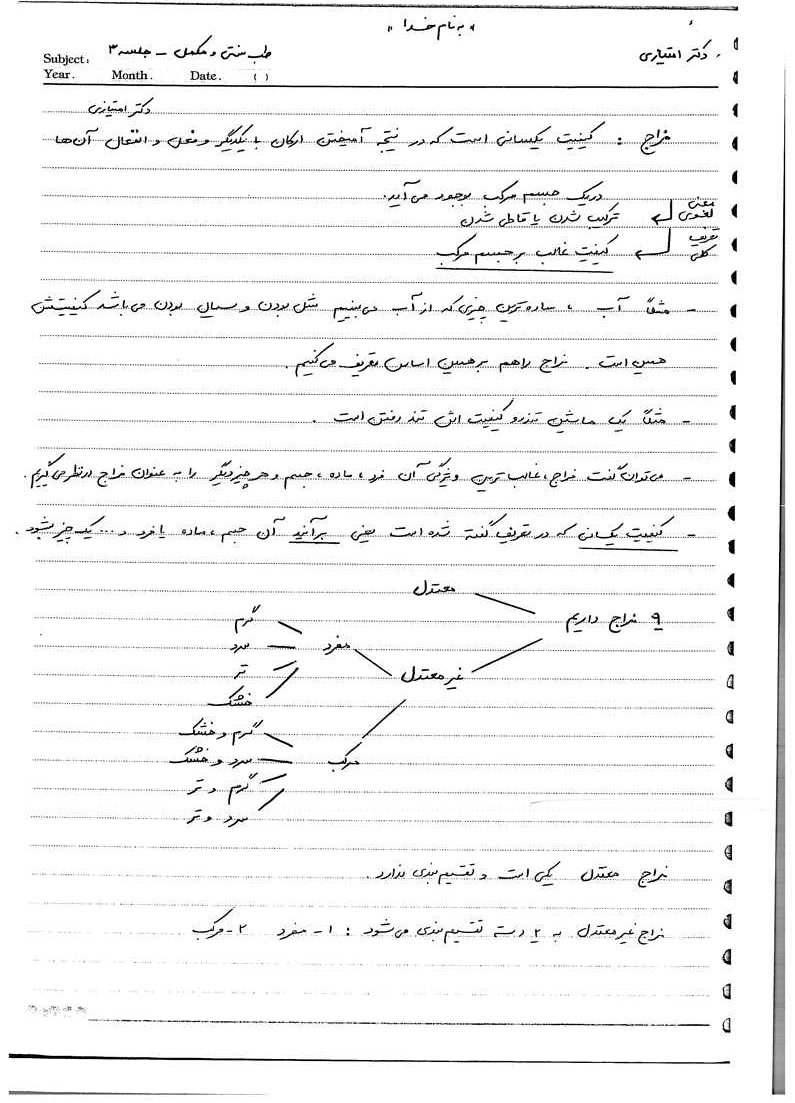 «به نام خدا»
دکتر امتیازی
طب سنتی و مکمل – جلسه ۳
Subject:
Year. Month. Date. ( )
دکتر امتیازی
مزاج : کیفیت یکسانی است که در نتیجه آمیختن ارکان با یکدیگر و فعل و انفعال آن‌ها
در یک جسم مرکب بوجود می‌آید.
معنی لغوی ← ترکیب شدن یا قاطی شدن
تعریف کلی ← کیفیت غالب بر جسم مرکب
- مثلاً آب ، ساده‌ترین چیزی که از آب می‌بینیم شل بودن و سیال بودن می‌باشد کیفیتش
همین است . مزاج را هم بر همین اساس تعریف می‌کنیم .
- مثلاً یک ماشین تندرو کیفیت اش تند رفتن است .
- می‌توان گفت مزاج، غالب‌ترین ویژگی آن فرد ، ماده ، جسم و هر چیز دیگر را به عنوان مزاج در نظر می‌گیریم .
- کیفیت یکسانی که در تعریف گفته شده است یعنی برآیند آن جسم ، ماده یا فرد و ... یک چیز بشود .
معتدل
۹ مزاج داریم
گرم
سرد
مفرد
تر
غیر معتدل
خشک
گرم و خشک
سرد و خشک
مرکب
گرم و تر
سرد و تر
مزاج معتدل یکی است و تقسیم بندی ندارد .
مزاج غیر معتدل به ۲ دسته تقسیم بندی می‌شود : ۱- مفرد ۲- مرکب